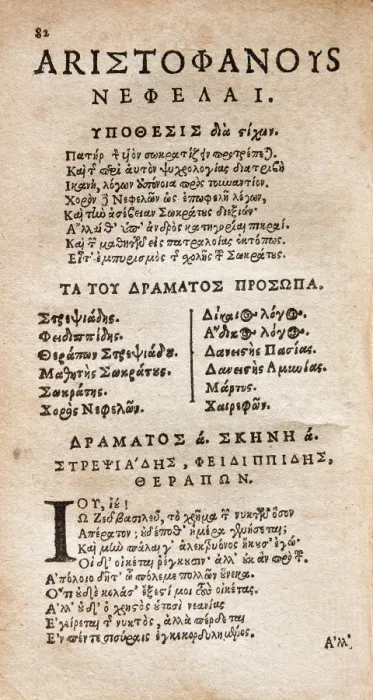 82
ARΙΣΤΟΦΑΝΟΥΣ
ΝΕΦΕΛΑΙ.
ΥΠΟΘΕΣΙΣ διὰ στίχων.
Πατὴρ τ̃ υἱὸν σωκρατίζειν προτρέπει.
Καὶ τ̃ περὶ αὐτὸν ψυχρολογίας διατριβὴ
Ἱκανὴ, λόγων ἀπόνοια πρὸς τοὐναντίον.
Χορὸν δὲ Νεφελῶν ὡς ἐπωφελῆ λέγων,
Καὶ τὴν ἀσέβειαν Σωκράτους διεξιών·
Ἄλλαι θ' ὑπ' ἀνδρὸς κατηγορίαι πικραί.
Καὶ τ̃ μαθητῶν εἷς πατραλοίας ἐκτόπως.
Εἶτ' ἐμπυρισμὸς τ̃ σχολῆς τ̃ Σωκράτους.
ΤΑ ΤΟΥ ΔΡΑΜΑΤΟΣ ΠΡΟΣΩΠΑ.
Στρεψιάδης.
Φειδιππίδης.
Θεράπων Στρεψιάδου.
Μαθητὴς Σωκράτους.
Σωκράτης.
Χορὸς Νεφελῶν.
Δίκαιος λόγος.
Ἄδικος λόγος.
Δανειστὴς Πασίας.
Δανειστὴς Ἀμυνίας.
Μάρτυς.
Χαιρεφῶν.
ΔΡΑΜΑΤΟΣ ά. ΣΚΗΝΗ ά.
ΣΤΡΕΨΙΑΔΗΣ, ΦΕΙΔΙΠΠΙΔΗΣ,
ΘΕΡΑΠΩΝ.
ΙΟΥ, ἰού!
Ὦ Ζεῦ βασιλεῦ, τὸ χρῆμα τ̃ νυκτῶν ὅσον
Ἀπέρατον· οὐδέποθ' ἡμέρα γενήσεται;
Καὶ μὴν πάλαι γ' ἀλεκτρυόνος ἤκουσ' ἐγώ·
Οἱ δ' οἰκέται ῥέγκουσιν· ἀλλ' οὐκ ἂν πρὸ τ̃.
Ἀπόλοιο δῆτ' ὦ πόλεμε πολλῶν οὕνεκα.
Ὅτ' οὐδὲ κολάσ' ἔξεστί μοι τοὺς οἰκέτας.
Ἀλλ' οὐδ' ὁ χρηστὸς οὑτοσὶ νεανίας
Ἐγείρεται τ̃ νυκτὸς, ἀλλὰ πέρδεται
Ἐν πέντε σισύραις ἐγκεκορδυλημένος.
Ἀλλ'